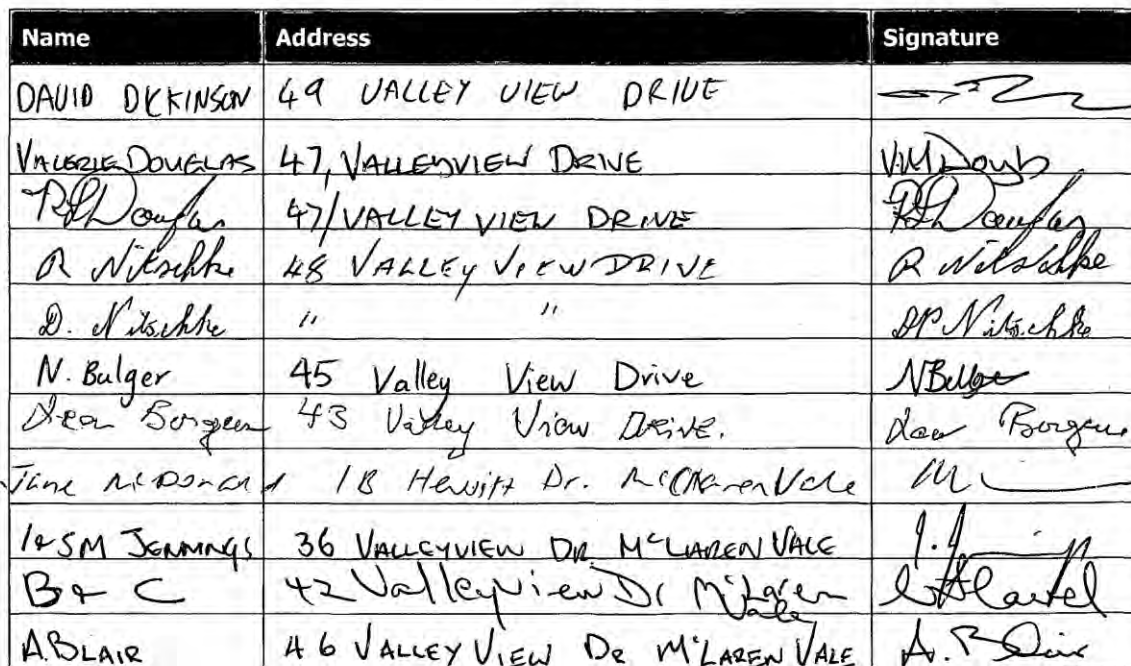 Name Address Signature
DAVID DYKINSON 49 VALLEY VIEW DRIVE
VALERIE DOUGLAS 47, VALLEYVIEW DRIVE V.M Dougs
Douglas 47/VALLEY VIEW DRIVE Douglas
R Nitschke 48 VALLEY VIEW DRIVE R Nitschke
D. Nitschke " " DP Nitschke
N. Bulger 45 Valley View Drive NBulger
43 Valley View DRIVE.
Jane McDonald 1B Hewitt Dr. McClaren Vale
I & SM JENNINGS 36 VALLEYVIEW DR McLAREN VALE
B & C 42 Valleyview Dr McLaren Vale
A.BLAIR 46 VALLEY VIEW DR McLAREN VALE A. Blair